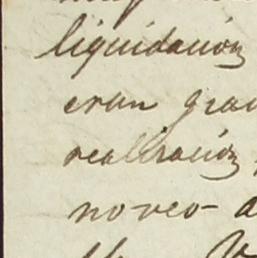 liquidacion
eran gra
realizacion
no veo a